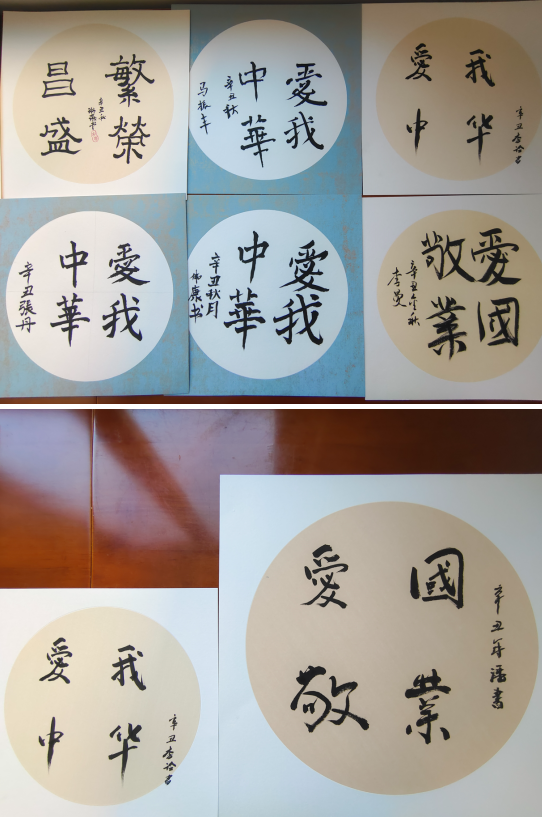 繁榮
昌盛
愛我
中華
辛丑秋
马振丰
愛我
中华
辛丑李
愛我
中華
辛丑張丹
愛我
中華
辛丑秋月
康书
愛國
敬業
辛丑金秋
李曼
愛我
中华
辛丑李
愛國
敬業
辛丑年
書